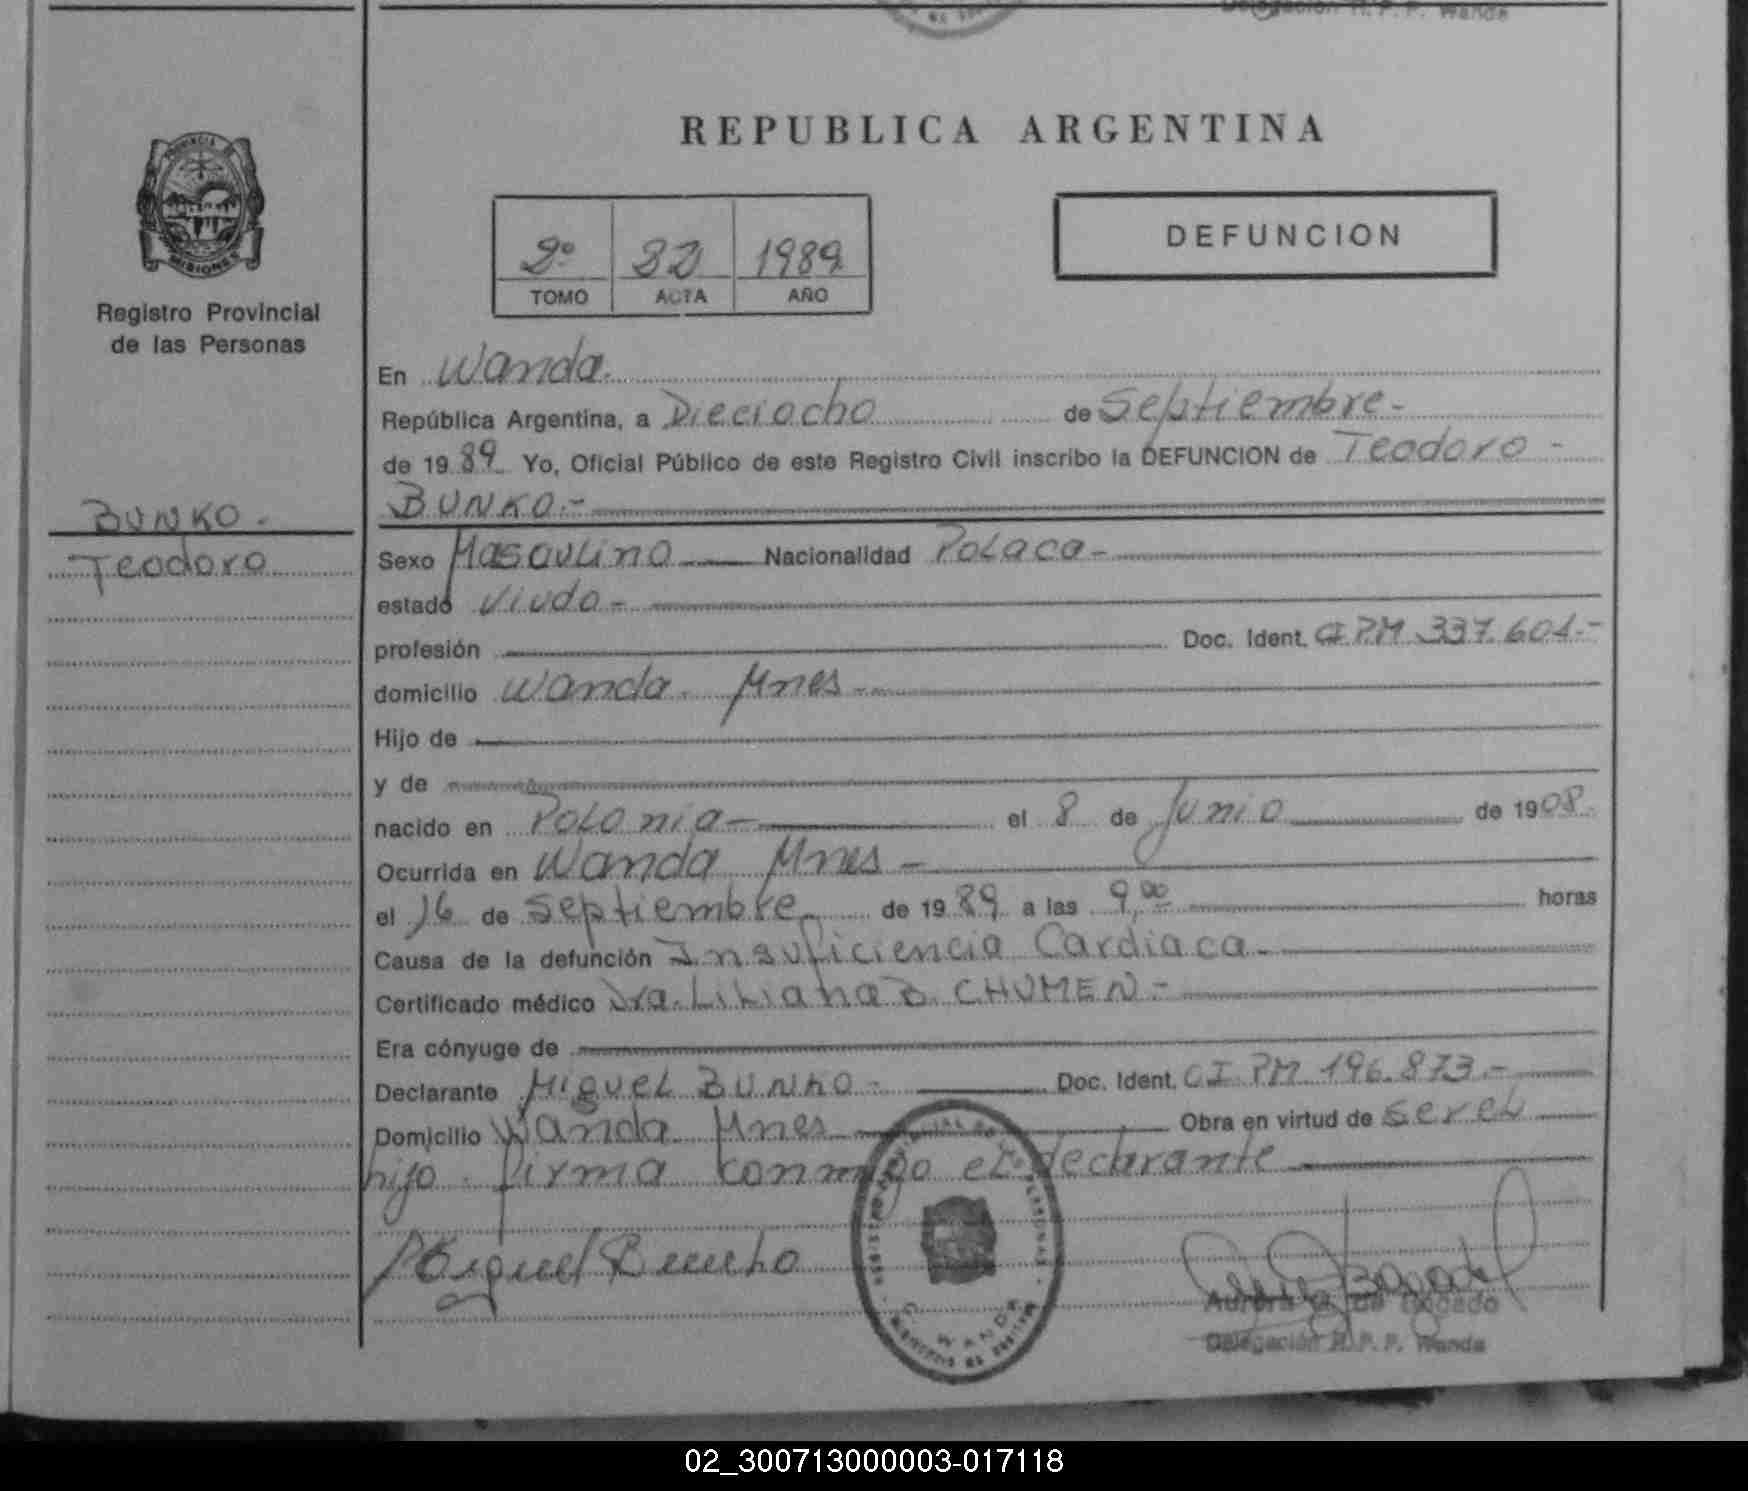 Delegación R.P.P. Wanda
REPUBLICA ARGENTINA
PROVINCIA
MISIONES
Registro Provincial
de las Personas
2º 32 1989
TOMO ACTA AÑO
DEFUNCION
En Wanda.
República Argentina, a Dieciocho de Septiembre-
de 1989 Yo, Oficial Público de este Registro Civil inscribo la DEFUNCION de Teodoro -
BUNKO.-
BUNKO.
Teodoro
Sexo Masculino Nacionalidad Polaca-
estado Viudo-
profesión Doc. Ident. CI PM 337.601.-
domicilio Wanda. Mnes-
Hijo de
y de
nacido en Polonia- el 8 de Junio de 1908.
Ocurrida en Wanda Mnes-
el 16 de Septiembre. de 1989 a las 9,00 horas
Causa de la defunción Insuficiencia Cardiaca-
Certificado médico Dra. Liliana B. CHUMEN.-
Era cónyuge de
Declarante Miguel BUNKO- Doc. Ident. CI PM 196.873.-
Domicilio Wanda Mnes Obra en virtud de ser el
hijo. firma conmigo el declarante
Miguel Buncko
WANDA
Aurora G. de Bogado
Delegación R.P.P. Wanda
02_300713000003-017118